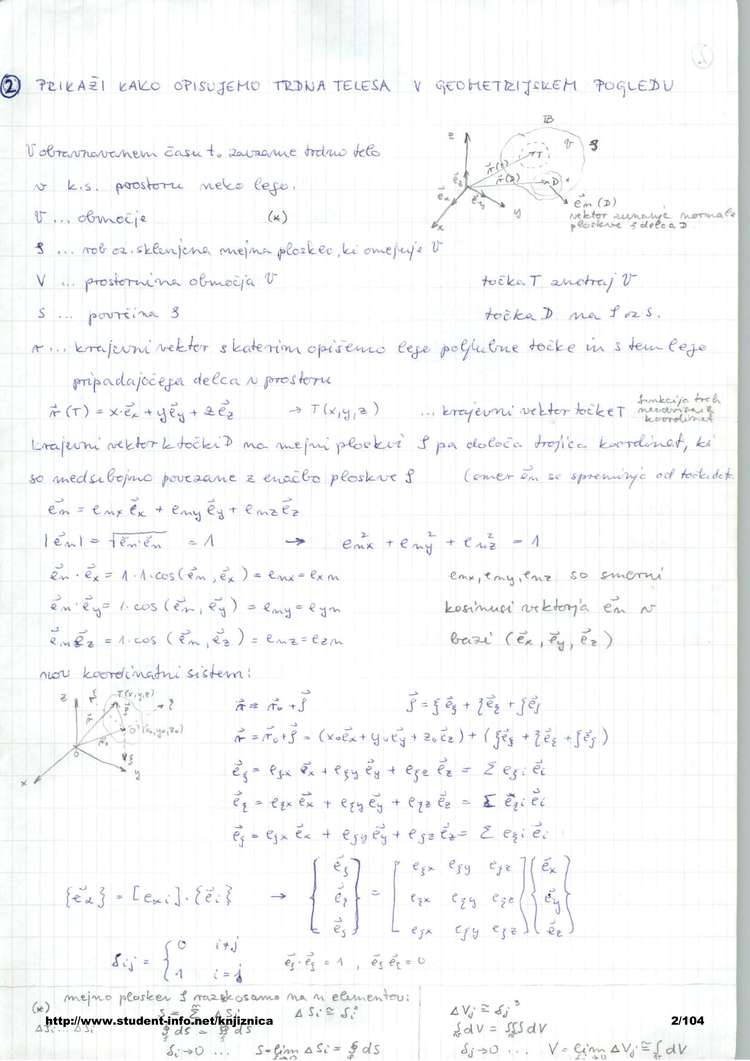 2 PRIKAŽI KAKO OPISUJEMO TRDNA TELESA V GEOMETRIJSKEM POGLEDU
V obravnavanem času t₀ zavzame trdno telo
v k.s. prostoru neko lego.
V ... območje (*)
S ... rob oz. sklenjena mejna ploskev, ki omejuje V
V ... prostornina območja V
točka T znotraj V
S ... površina S
točka D na S oz S.
z
x
y
B
r(T)
r(D)
T
D
e⃗n (D)
vektor zunanje normale
ploskve S delca D
r ... krajevni vektor s katerim opišemo lego poljubne točke in s tem lego
pripadajočega delca v prostoru
r⃗(T) = x·e⃗x + ye⃗y + ze⃗z → T(x,y,z) ... krajevni vektor točke T
funkcija treh
neodvisnih
koordinat
Krajevni vektor k točki D na mejni ploskvi S pa določa trojica koordinat, ki
so medsebojno povezane z enačbo ploskve S (smer e⃗n se spreminja od točke do t.
e⃗n = enx e⃗x + eny e⃗y + enz e⃗z
|e⃗n| = √e⃗n·e⃗n = 1 → enx² + eny² + enz² = 1
e⃗n · e⃗x = 1·1·cos(e⃗n, e⃗x) = enx = exn
enx, eny, enz so smerni
e⃗n · e⃗y = 1·cos(e⃗n, e⃗y) = eny = eyn
kosinusi vektorja e⃗n v
e⃗n e⃗z = 1·cos (e⃗n, e⃗z) = enz = ezn
bazi (e⃗x, e⃗y, e⃗z)
nov koordinatni sistem:
z
T(x,y,z)
O'(x₀,y₀,z₀)
O
x
y
r⃗ = r⃗₀ + ρ⃗
ρ⃗ = ξe⃗ξ + ηe⃗η + ζe⃗ζ
r⃗ = r⃗₀ + ρ⃗ = (x₀e⃗x + y₀e⃗y + z₀e⃗z) + (ξe⃗ξ + ηe⃗η + ζe⃗ζ)
e⃗ξ = eξx e⃗x + eξy e⃗y + eξz e⃗z = Σ eξi e⃗i
e⃗η = eηx e⃗x + eηy e⃗y + eηz e⃗z = Σ eηi e⃗i
e⃗ζ = eζx e⃗x + eζy e⃗y + eζz e⃗z = Σ eζi e⃗i
{e⃗α} = [eαi]·{e⃗i} → {e⃗ξ e⃗η e⃗ζ} = [eξx eξy eξz
eηx eηy eηz
eζx eζy eζz] {e⃗x e⃗y e⃗z}
δij = { 0 i≠j
1 i=j
e⃗ξ·e⃗ξ = 1, e⃗ξ e⃗η = 0
(*) mejno ploskev S razkosamo na n elementov:
ΔSi ≅ δi²
ΔVj ≅ δj³
http://www.student-info.net/knjiznica
2/104
∮ dS = ∯ dS
∫ dV = ∭ dV
δi→0 ... S = lim ΔSi = ∮ dS
δj→0 ... V = lim ΔVj = ∫ dV